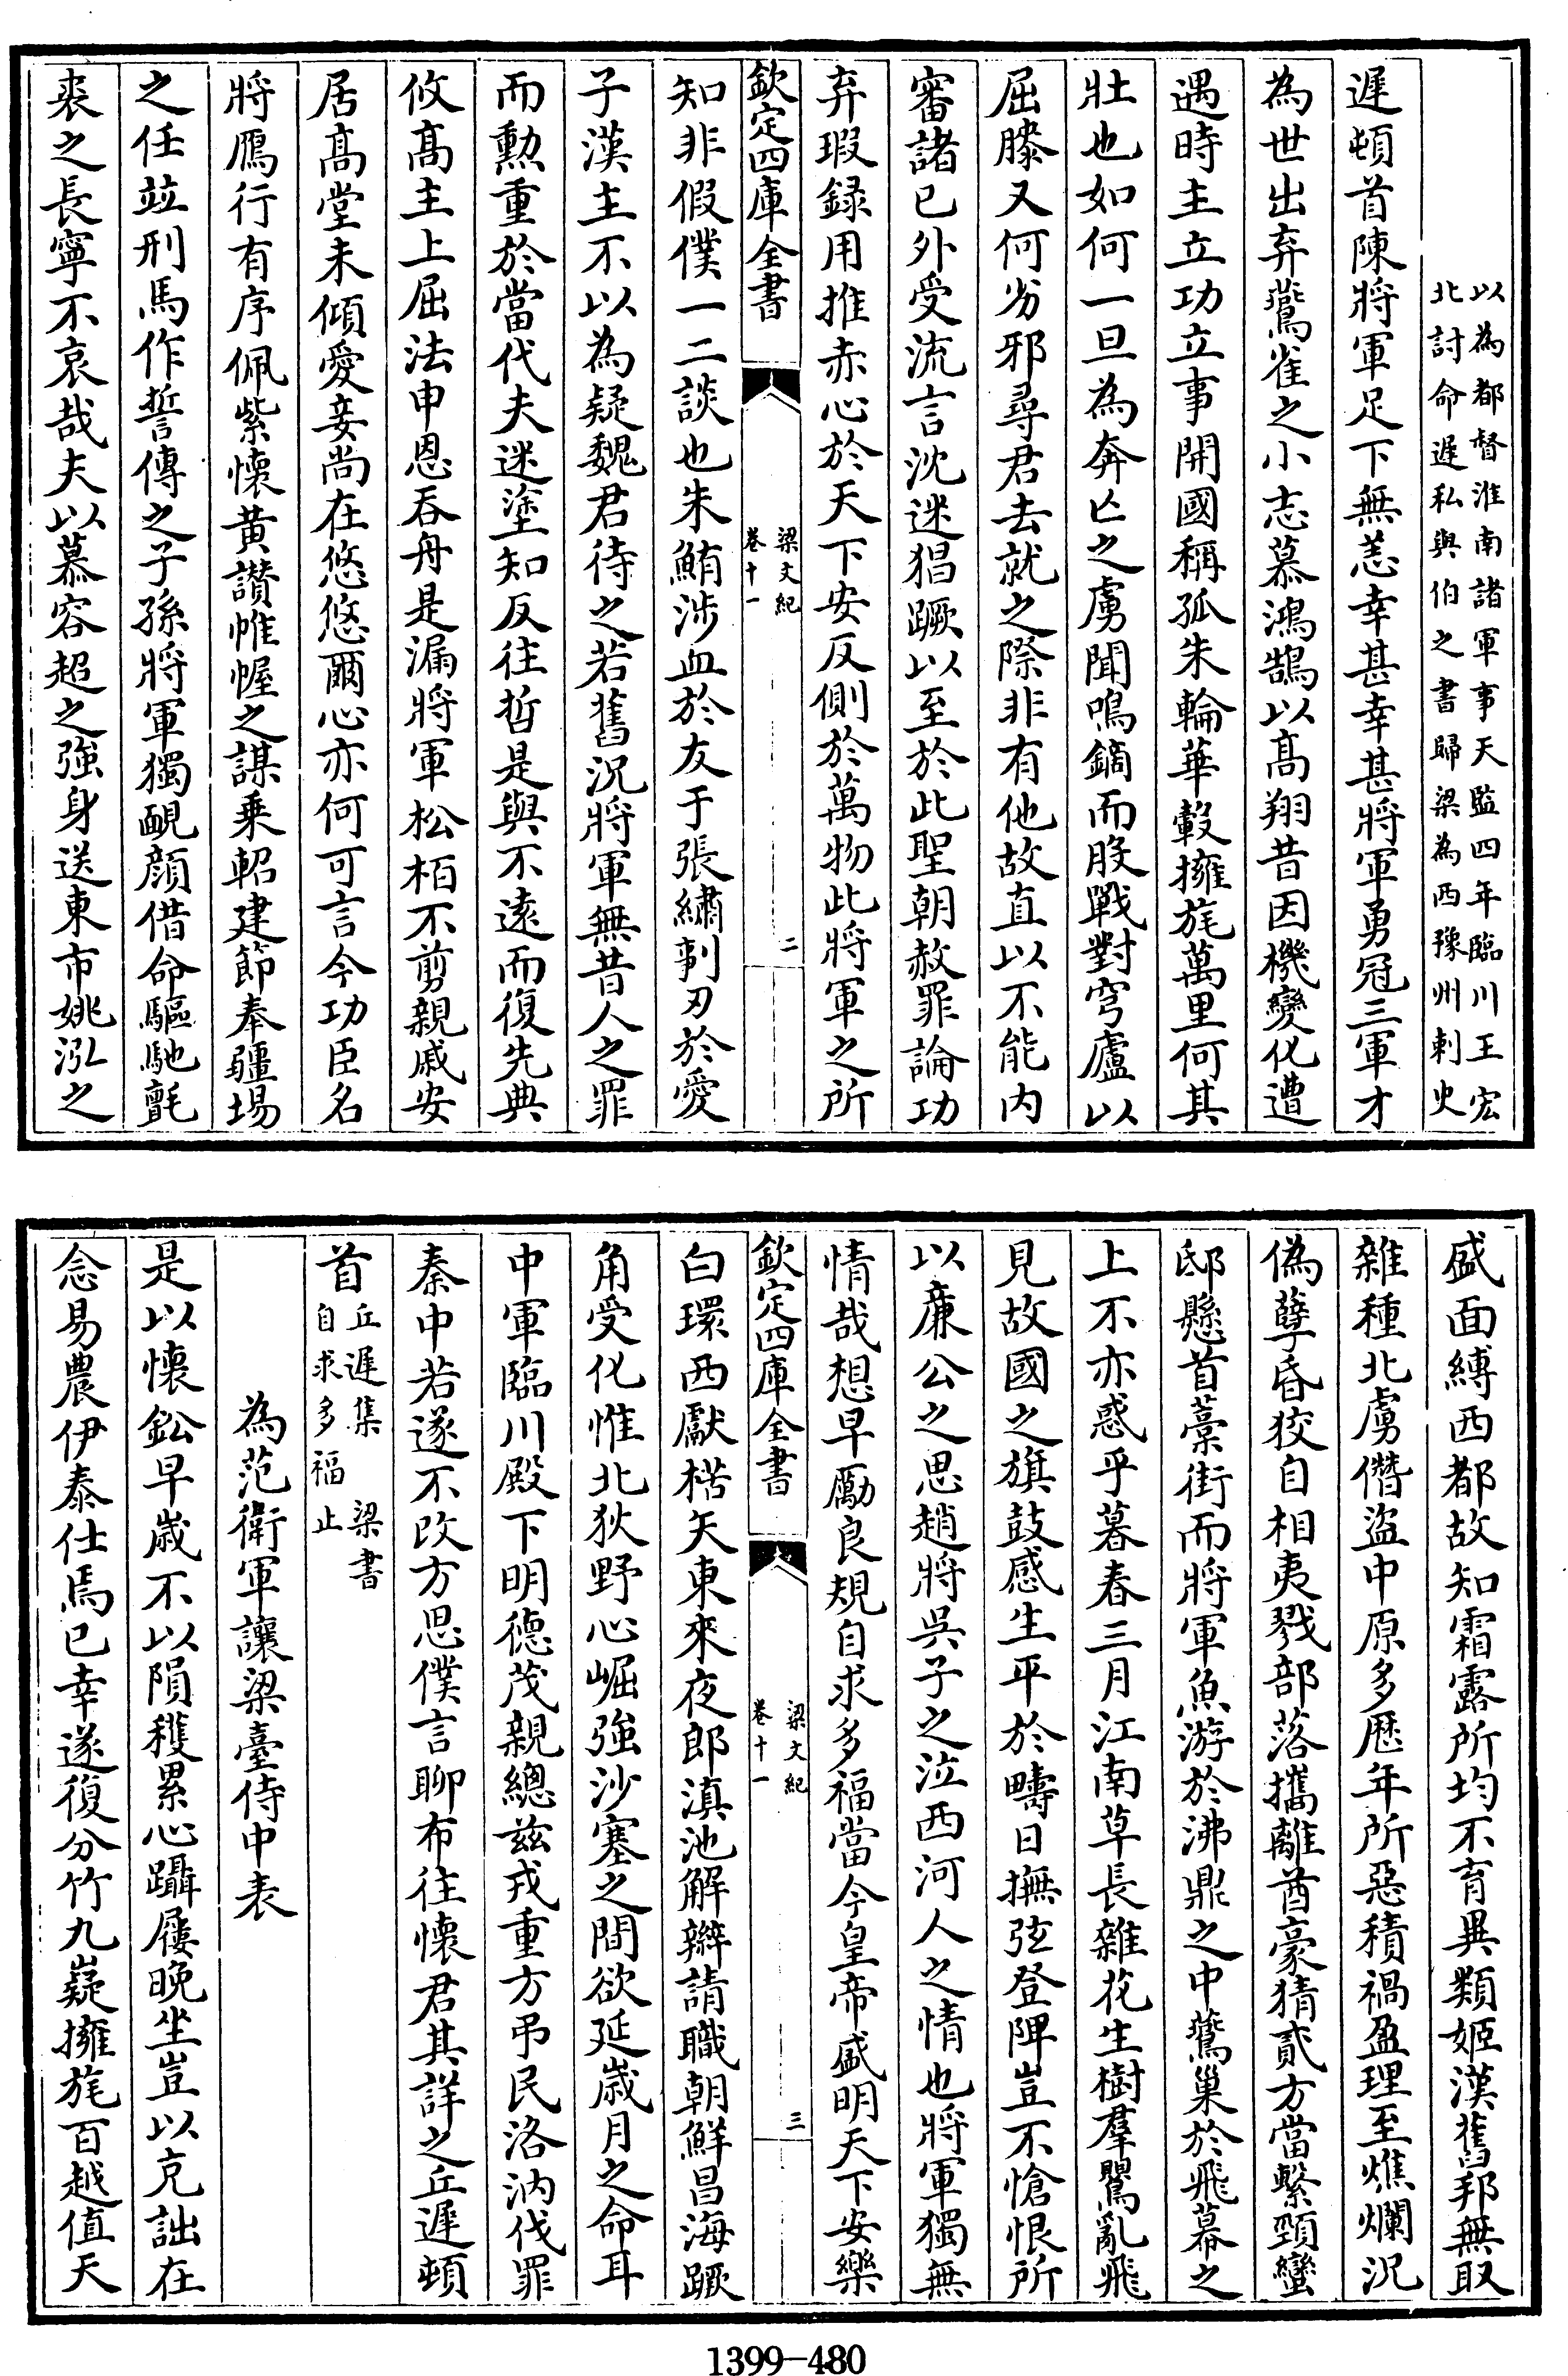 以為都督淮南諸軍事天監四年臨川王宏
北討命遲私與伯之書歸梁為西豫州刺史
遲頓首陳將軍足下無恙幸甚幸甚將軍勇冠三軍才
為世出弃鷰雀之小志慕鴻鵠以髙翔昔因機變化遭
遇時主立功立事開國稱孤朱輪華轂擁旄萬里何其
壯也如何一旦為奔亡之虜聞鳴鏑而股戰對穹廬以
屈膝又何劣邪尋君去就之際非有他故直以不能内
審諸已外受流言沈迷猖蹶以至於此聖朝赦罪論功
弃瑕録用推赤心於天下安反側於萬物此將軍之所
欽定四庫全書
梁文紀
卷十一
二
知非假僕一二談也朱鮪涉血於友于張繡剚刃於愛
子漢主不以為疑魏君待之若舊況將軍無昔人之罪
而勲重於當代夫迷塗知反往哲是與不逺而復先典
攸髙主上屈法申恩吞舟是漏將軍松栢不剪親戚安
居髙堂未傾愛妾尚在悠悠爾心亦何可言今功臣名
將鴈行有序佩紫懷黄讚帷幄之謀乗軺建節奉疆埸
之任竝刑馬作誓傳之子孫將軍獨靦顔借命驅馳氈
裘之長寧不哀哉夫以慕容超之強身送東市姚泓之
盛面縛西都故知霜露所均不育異類姬漢舊邦無取
雜種北虜僭盜中原多歴年所惡積禍盈理至燋爛況
偽孽昏狡自相夷戮部落攜離酋豪猜貳方當繫頸蠻
邸懸首藁街而將軍魚游於沸鼎之中鷰巢於飛幕之
上不亦惑乎暮春三月江南草長雜花生樹羣鸎亂飛
見故國之旗鼓感生平於疇日撫弦登陴豈不愴悢所
以亷公之思趙將吳子之泣西河人之情也將軍獨無
情哉想早勵良規自求多福當今皇帝盛明天下安樂
欽定四庫全書
梁文紀
卷十一
三
白環西獻楛矢東來夜郎滇池解辮請職朝鮮昌海蹶
角受化惟北狄野心崛強沙塞之間欲延嵗月之命耳
中軍臨川殿下明德茂親總兹戎重方弔民洛汭伐罪
秦中若遂不改方思僕言聊布往懷君其詳之丘遲頓
首丘遲集 梁書
自求多福止
為范衛軍讓梁臺侍中表
是以懷鈆早嵗不以隕穫累心躡屩晚坐豈以充詘在
念易農伊泰仕焉已幸遂復分竹九嶷擁旄百越值天
1399-480